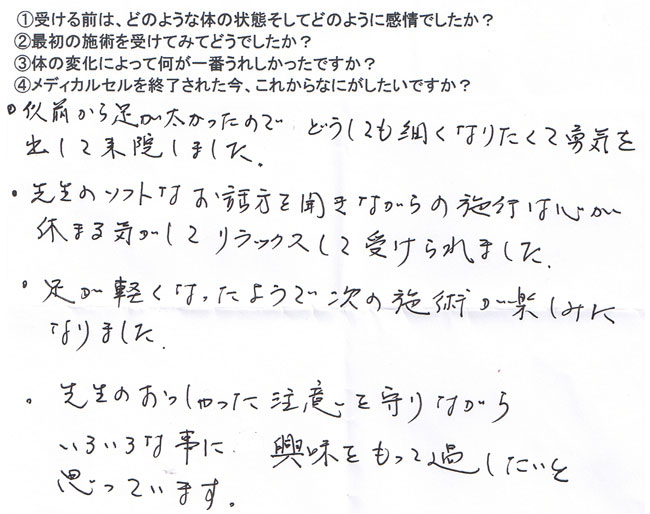 ①受ける前は、どのような体の状態そしてどのように感情でしたか？
②最初の施術を受けてみてどうでしたか？
③体の変化によって何が一番うれしかったですか？
④メディカルセルを終了された今、これからなにがしたいですか？
・以前から足が太かったので どうしても細くなりたくて勇気を
出して来院しました。
・先生のソフトなお話方を聞きながらの施行は心が
休まる気がしてリラックスして受けられました。
・足が軽くなったようで次の施術が楽しみに
なりました。
・先生のおっしゃった注意を守りながら
いろいろな事に 興味をもって過したいと
思っています。